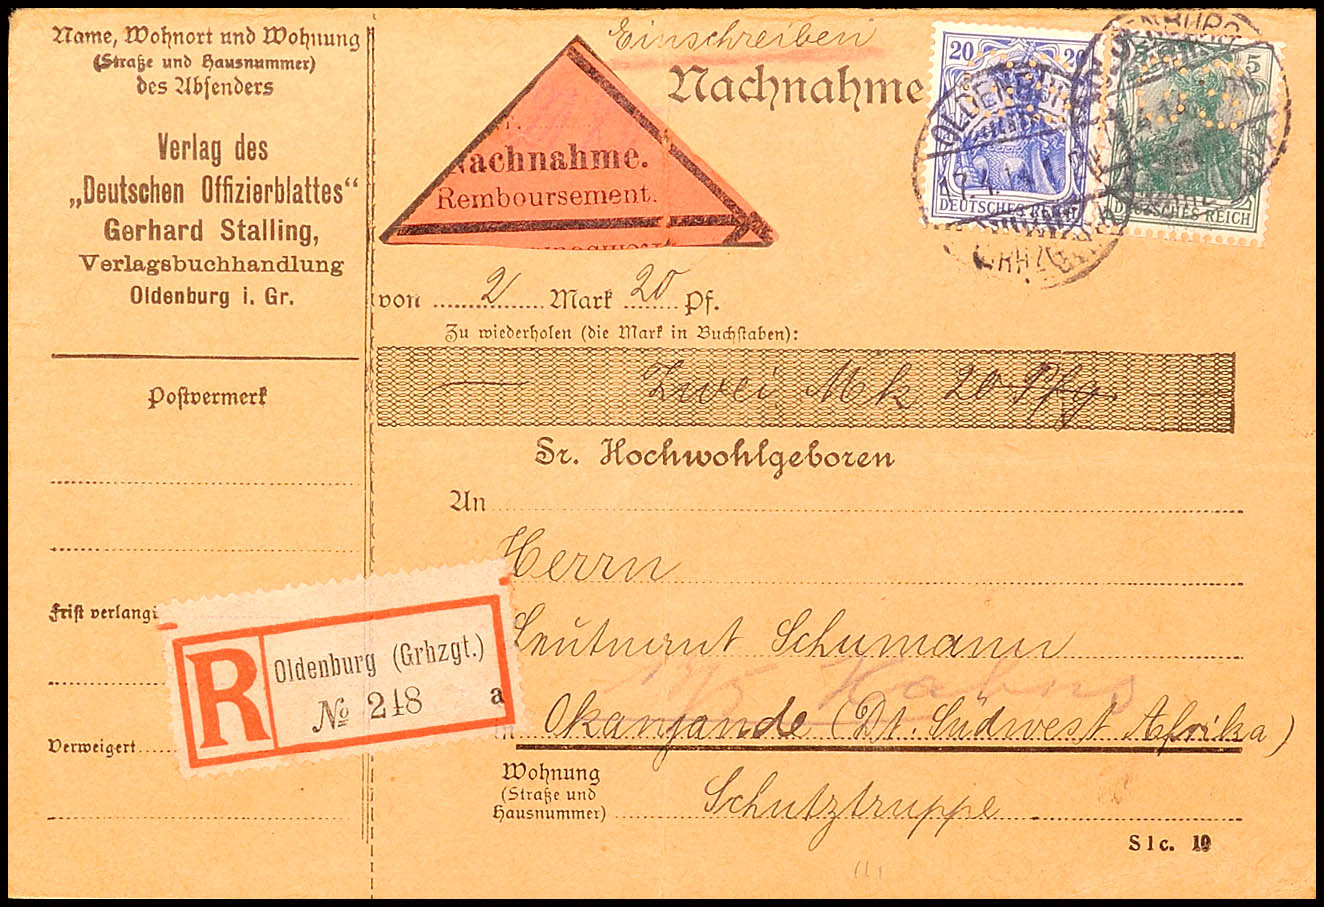 Name, Wohnort und Wohnung
(Straße und Hausnummer)
des Absenders
Verlag des
„Deutschen Offizierblattes“
Gerhard Stalling,
Verlagsbuchhandlung
Oldenburg i. Gr.
Postvermerk
Frist verlangt
Verweigert
R
Oldenburg (Grhzgt.)
№ 248
a
Einschreiben
Nachnahme
Nachnahme.
Remboursement.
20 20
DEUTSCHES REICH
5 5
DEUTSCHES REICH
OLDENBURG
17.4.14
GRHZGT
von 2 Mark 20 Pf.
Zu wiederholen (die Mark in Buchstaben):
Zwei Mk 20 Pfg.
Sr. Hochwohlgeboren
An
Herrn
Leutnant Schumann
in Okanjande (Dt. Südwest Afrika)
Wohnung
(Straße und
Hausnummer)
Schutztruppe
Slc. 10